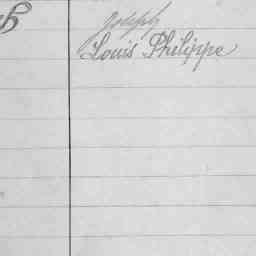 Joseph
Louis Philippe